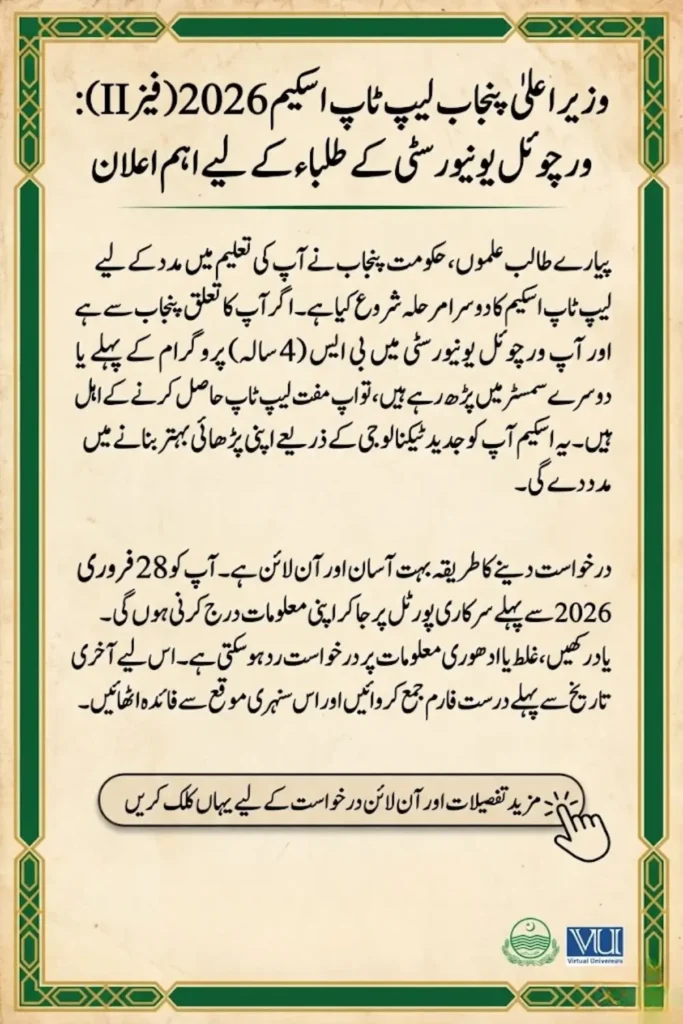 وزیراعلیٰ پنجاب لیپ ٹاپ اسکیم 2026 (فیز II):
ورچوئل یونیورسٹی کے طلباء کے لیے اہم اعلان
پیارے طالب علموں، حکومت پنجاب نے آپ کی تعلیم میں مدد کے لیے
لیپ ٹاپ اسکیم کا دوسرا مرحلہ شروع کیا ہے۔ اگر آپ کا تعلق پنجاب سے ہے
اور آپ ورچوئل یونیورسٹی میں بی ایس (4 سالہ) پروگرام کے پہلے یا
دوسرے سمسٹر میں پڑھ رہے ہیں، تو اپ مفت لیپ ٹاپ حاصل کرنے کے اہل
ہیں۔ یہ اسکیم آپ کو جدید ٹیکنالوجی کے ذریعے اپنی پڑھائی بہتر بنانے میں
مدد دے گی۔
درخواست دینے کا طریقہ بہت آسان اور آن لائن ہے۔ آپ کو 28 فروری
2026 سے پہلے سرکاری پورٹل پر جا کر اپنی معلومات درج کرنی ہوں گی۔
یاد رکھیں، غلط یا ادھوری معلومات پر درخواست رد ہو سکتی ہے۔ اس لیے آخری
تاریخ سے پہلے درست فارم جمع کروائیں اور اس سنہری موقع سے فائدہ اٹھائیں۔
مزید تفصیلات اور آن لائن درخواست کے لیے یہاں کلک کریں
VU